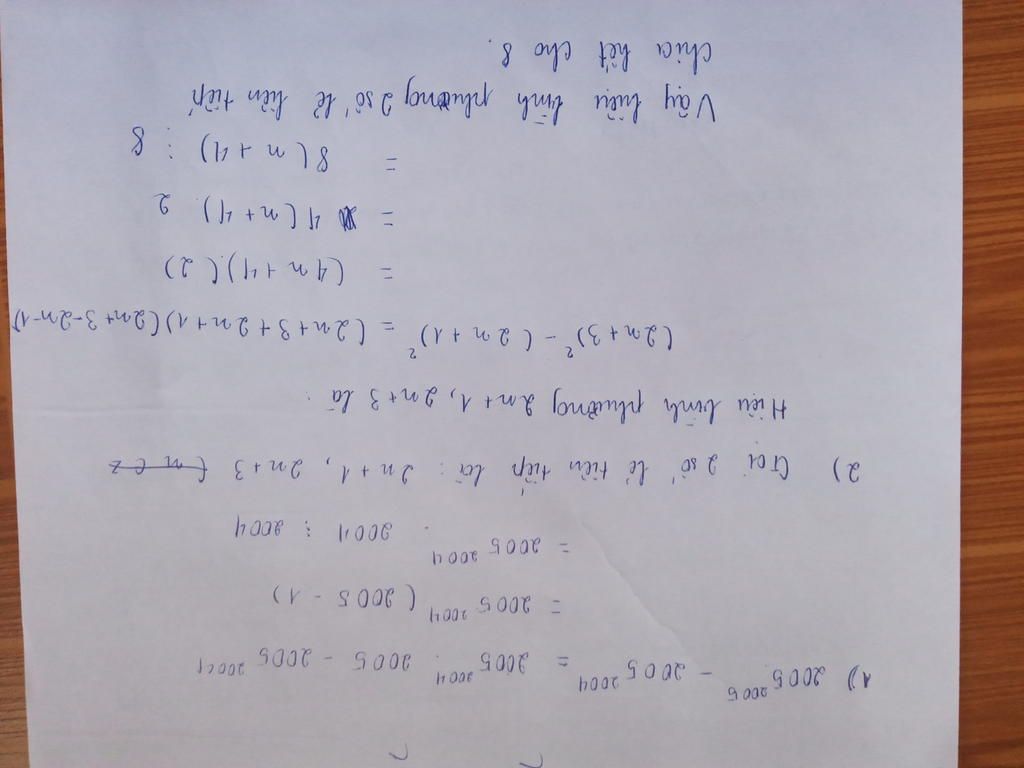 1) 2005²⁰⁰⁵ - 2005²⁰⁰⁴ = 2005²⁰⁰⁴. 2005 - 2005²⁰⁰⁴
= 2005²⁰⁰⁴ (2005 - 1)
= 2005²⁰⁰⁴ . 2004 ⋮ 2004
2) Gọi 2 số lẻ liên tiếp là: 2n+1, 2n+3 (n ∈ z
Hiệu bình phương 2n+1, 2n+3 là :
(2n+3)² - (2n+1)² = (2n+3+2n+1)(2n+3-2n-1)
= (4n+4).(2)
= 4(n+4).2
= 8(n+4) ⋮ 8
Vậy hiệu bình phương 2 số lẻ liên tiếp
chia hết cho 8.